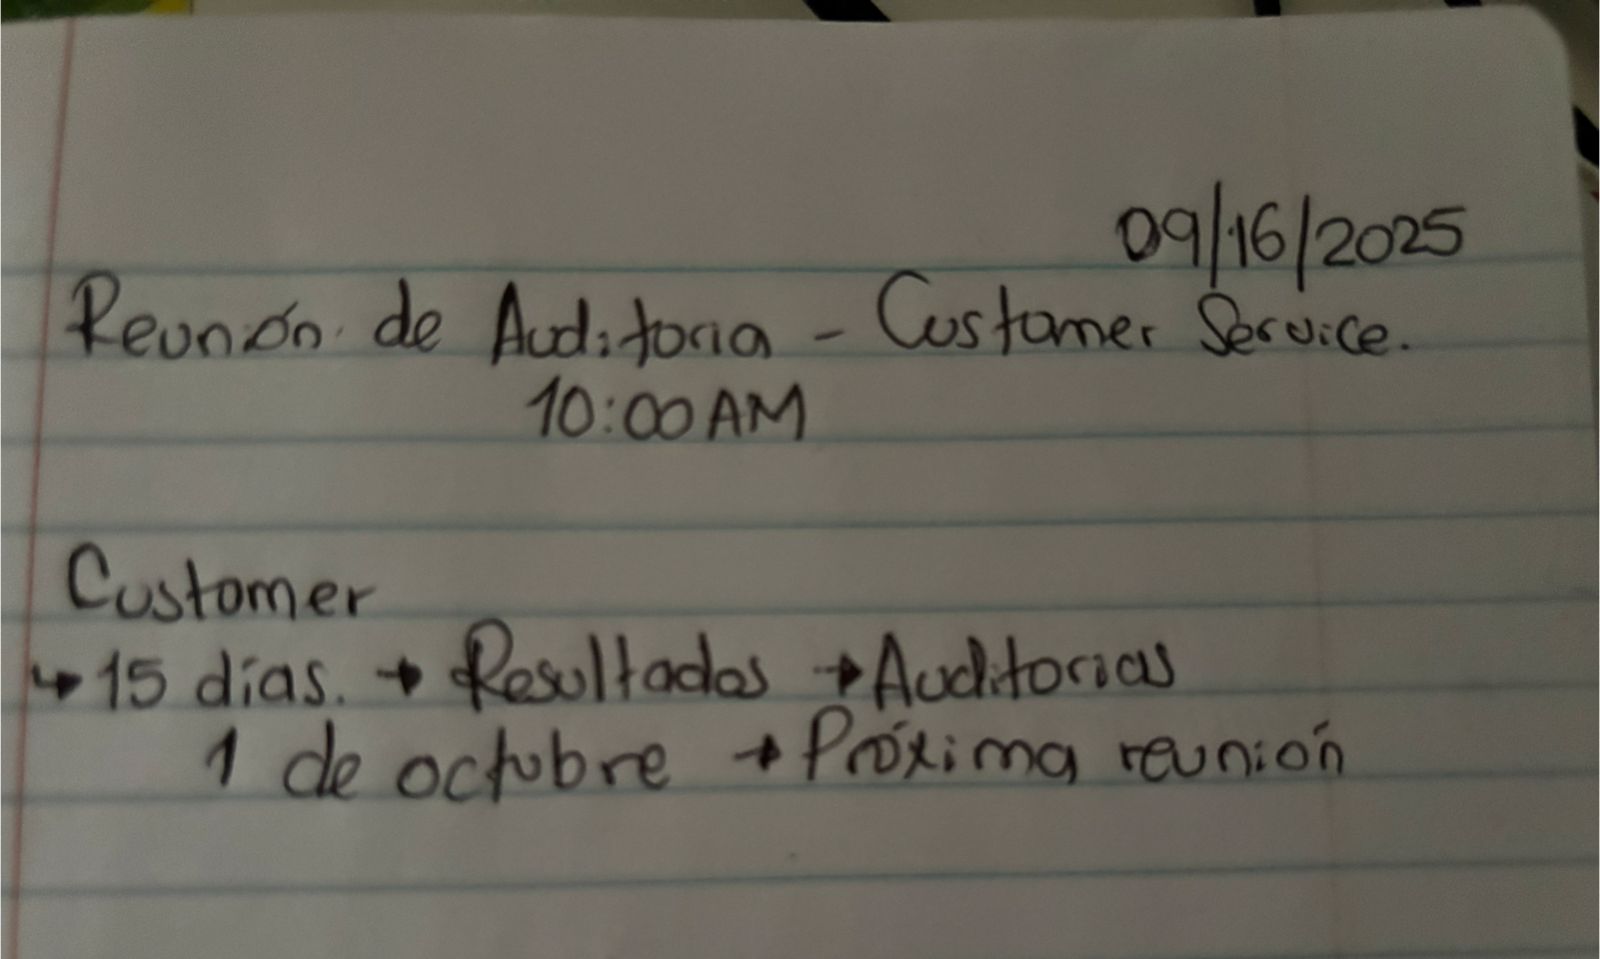 09/16/2025
Reunión de Auditoria - Customer Service.
10:00 AM
Customer
↳ 15 días. → Resultados → Auditorias
1 de octubre → Próxima reunión